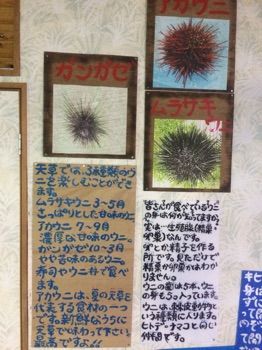 アカウニ
ガンガゼ
ムラサキ
ウニ
天草では、3種類のウ
ニを楽しむことができ
ます。
ムラサキウニ 3〜5月
さっぱりとした甘味のウニ
アカウニ 7〜9月
濃厚な甘味のウニ。
ガンガゼ 10〜3月
やや苦味のあるウニ。
寿司やウニ丼で食べ
ます。
アカウニは、夏の天草を
代表する食材の一つ
です。新鮮なうちに
天草で味わって下さい。
最高ですよ!!
皆さんが食べているウニ
の身は何か知ってますか?
実は…生殖腺(精巣・
卵巣)なんです。
卵とか精子を作る
所です。見ただけで
精巣か卵巣かはわか
りません。
ウニの巣は5本、ウニ
の身も5つ入っています。
ウニは、棘皮動物と
いう種類に入ります。
ヒトデ、ナマコと同じ
仲間です。